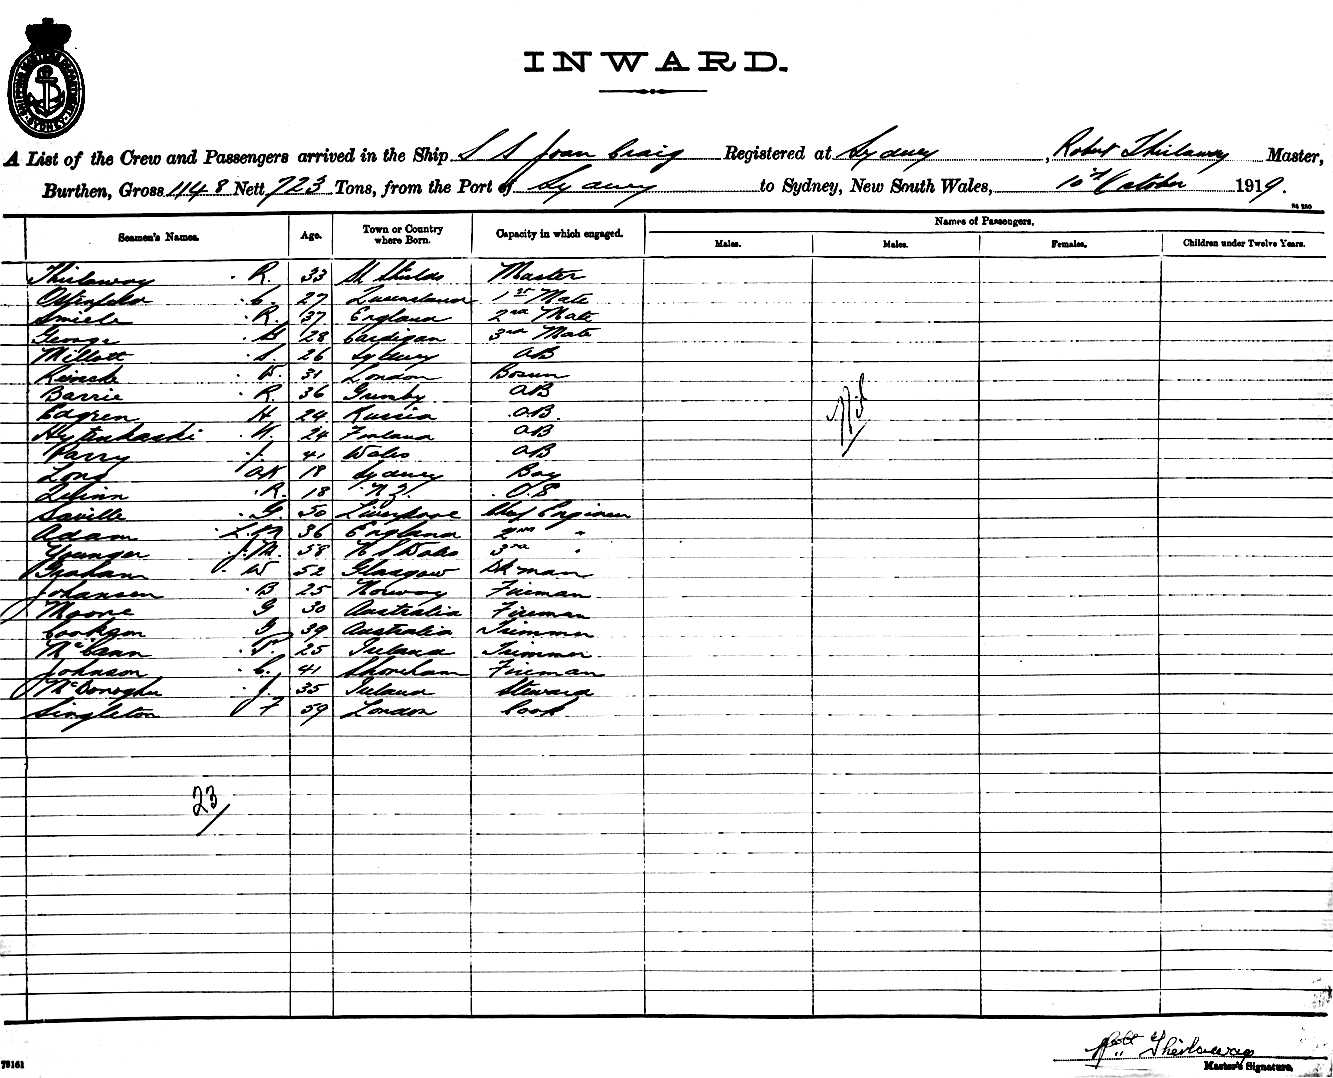 INWARD.
A List of the Crew and Passengers arrived in the Ship S S Joan Craig Registered at Sydney, Robert Thirlaway Master,
Burthen, Gross 1148 Nett 723 Tons, from the Port of Sydney to Sydney, New South Wales, 10th October 1919.
Seamen's Names. Age. Town or Country where Born. Capacity in which engaged. Names of Passengers.
Males. Males. Females. Children under Twelve Years.
Thirlaway R. 33 Sh Shields Master
C. 27 Queensland 1st Mate
R. 37 England 2nd Mate
George 28 Cardigan 3rd Mate
Millott S. 26 Sydney AB
W. 31 London Bosun
Barrie R. 36 Grimby AB
Lagren H 24 Russia AB.
24 Finland AB
Parry J. 41 Wales AB
Long AK 18 Sydney Boy
Quinn R. 18 N.Z. O.S
Saville G 50 Liverpool Chief Engineer
Adam 36 England 2nd "
Younger J.M. 58 N S Wales 3rd "
Graham W 52 Glasgow Dkman
Johansen B 25 Norway Fireman
Moore G 30 Australia Fireman
Cookson 39 Australia Trimmer
McCann T. 25 Ireland Trimmer
Johnson C. 41 Shoreham Fireman
McDonoghu J. 35 Ireland Steward
Singleton F 59 London Cook
Nil
23/
Robt Thirlaway
Master's Signature.
78161